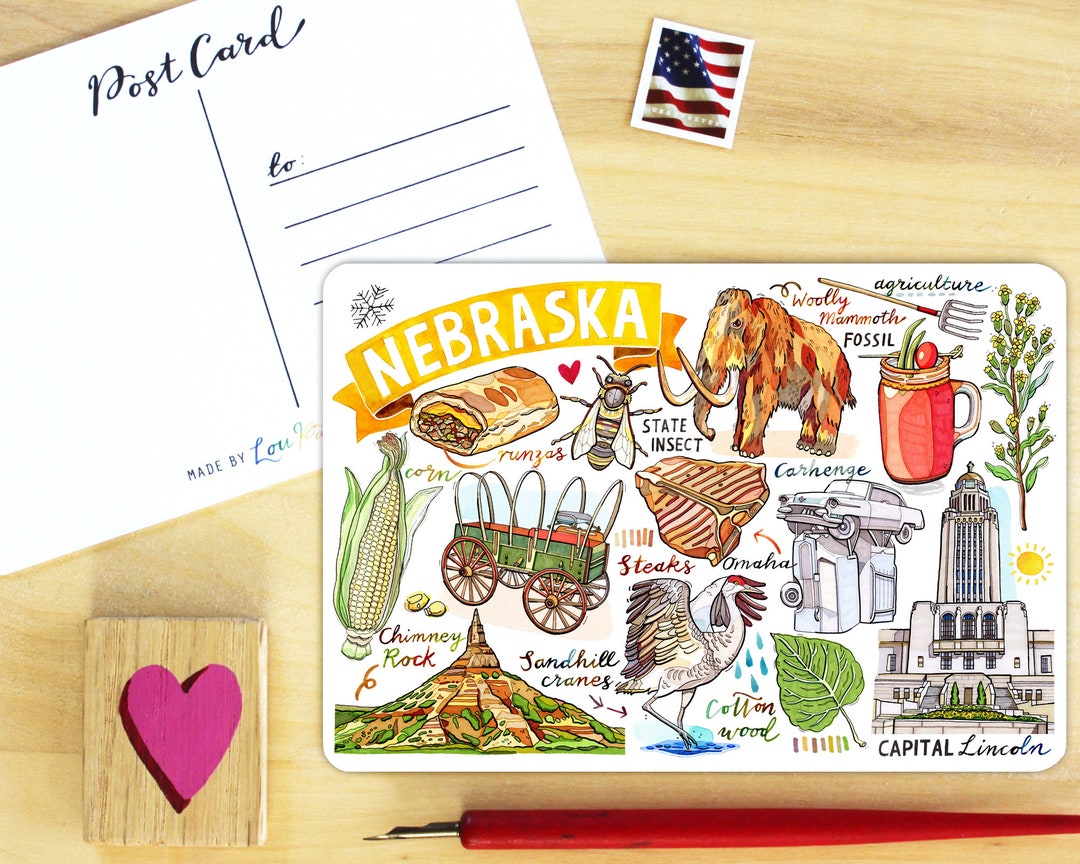 Post Card
to:
MADE BY Lou
USA FOREVER
NEBRASKA
agriculture
Woolly
Mammoth
FOSSIL
STATE
INSECT
runzas
corn
Carhenge
Steaks
Omaha
Chimney
Rock
Sandhill
cranes
Cotton
wood
CAPITAL Lincoln